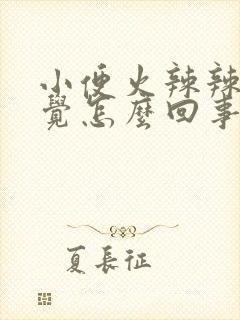 小便火辣辣
覺怎麼回事
夏長征